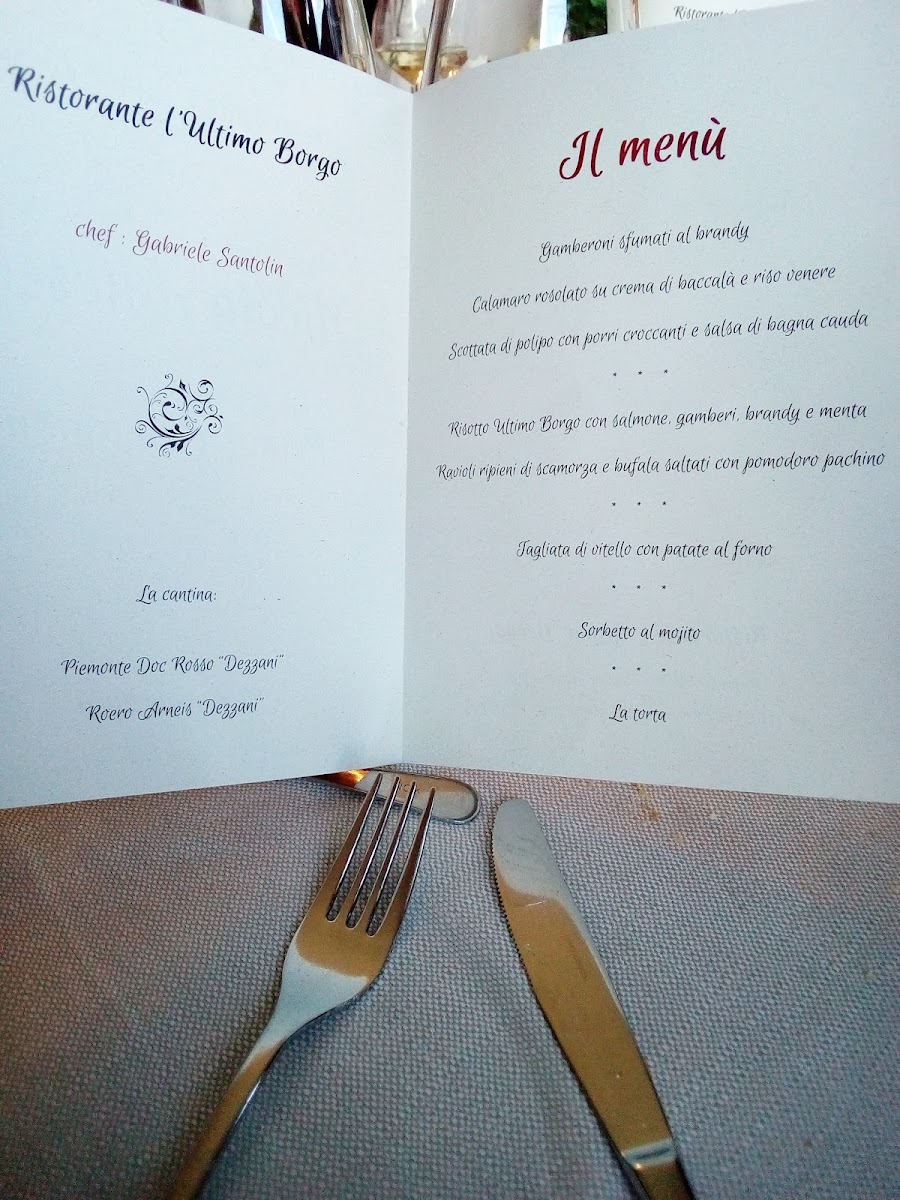 Ristorante l'Ultimo Borgo
chef : Gabriele Santolin
La cantina:
Piemonte Doc Rosso "Dezzani"
Roero Arneis "Dezzani"
Ristorante
Il menù
Gamberoni sfumati al brandy
Calamaro rosolato su crema di baccalà e riso venere
Scottata di polipo con porri croccanti e salsa di bagna cauda
* * *
Risotto Ultimo Borgo con salmone, gamberi, brandy e menta
Ravioli ripieni di scamorza e bufala saltati con pomodoro pachino
* * *
Tagliata di vitello con patate al forno
* * *
Sorbetto al mojito
* * *
La torta